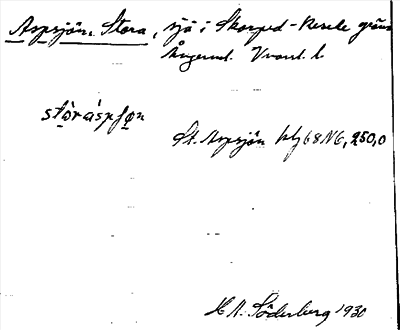 Aspsjön, Stora, sjö i Skorped-Resele gräns
Ångerml. Vnorl. l.
stòraspʃọn
St. Aspsjön blj 68 NG, 250,0
H N. Söderberg 1930